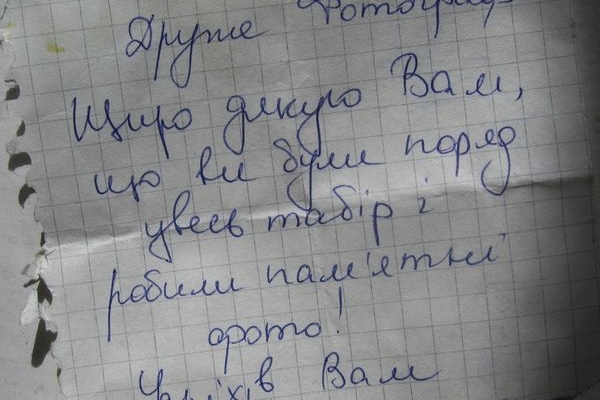 Друже Фотограф
Щиро дякую Вам,
що ви були поряд
увесь табір і
робили пам'ятні
фото!
Успіхів Вам